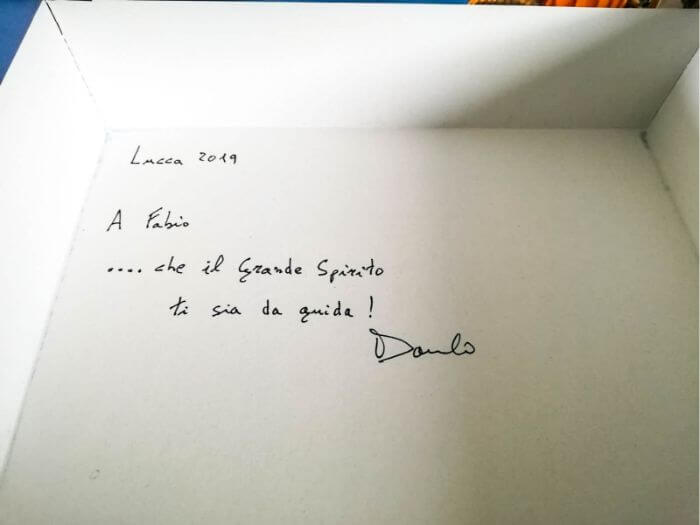 Lucca 2019
A Fabio
.... che il Grande Spirito
ti sia da guida !
Danilo